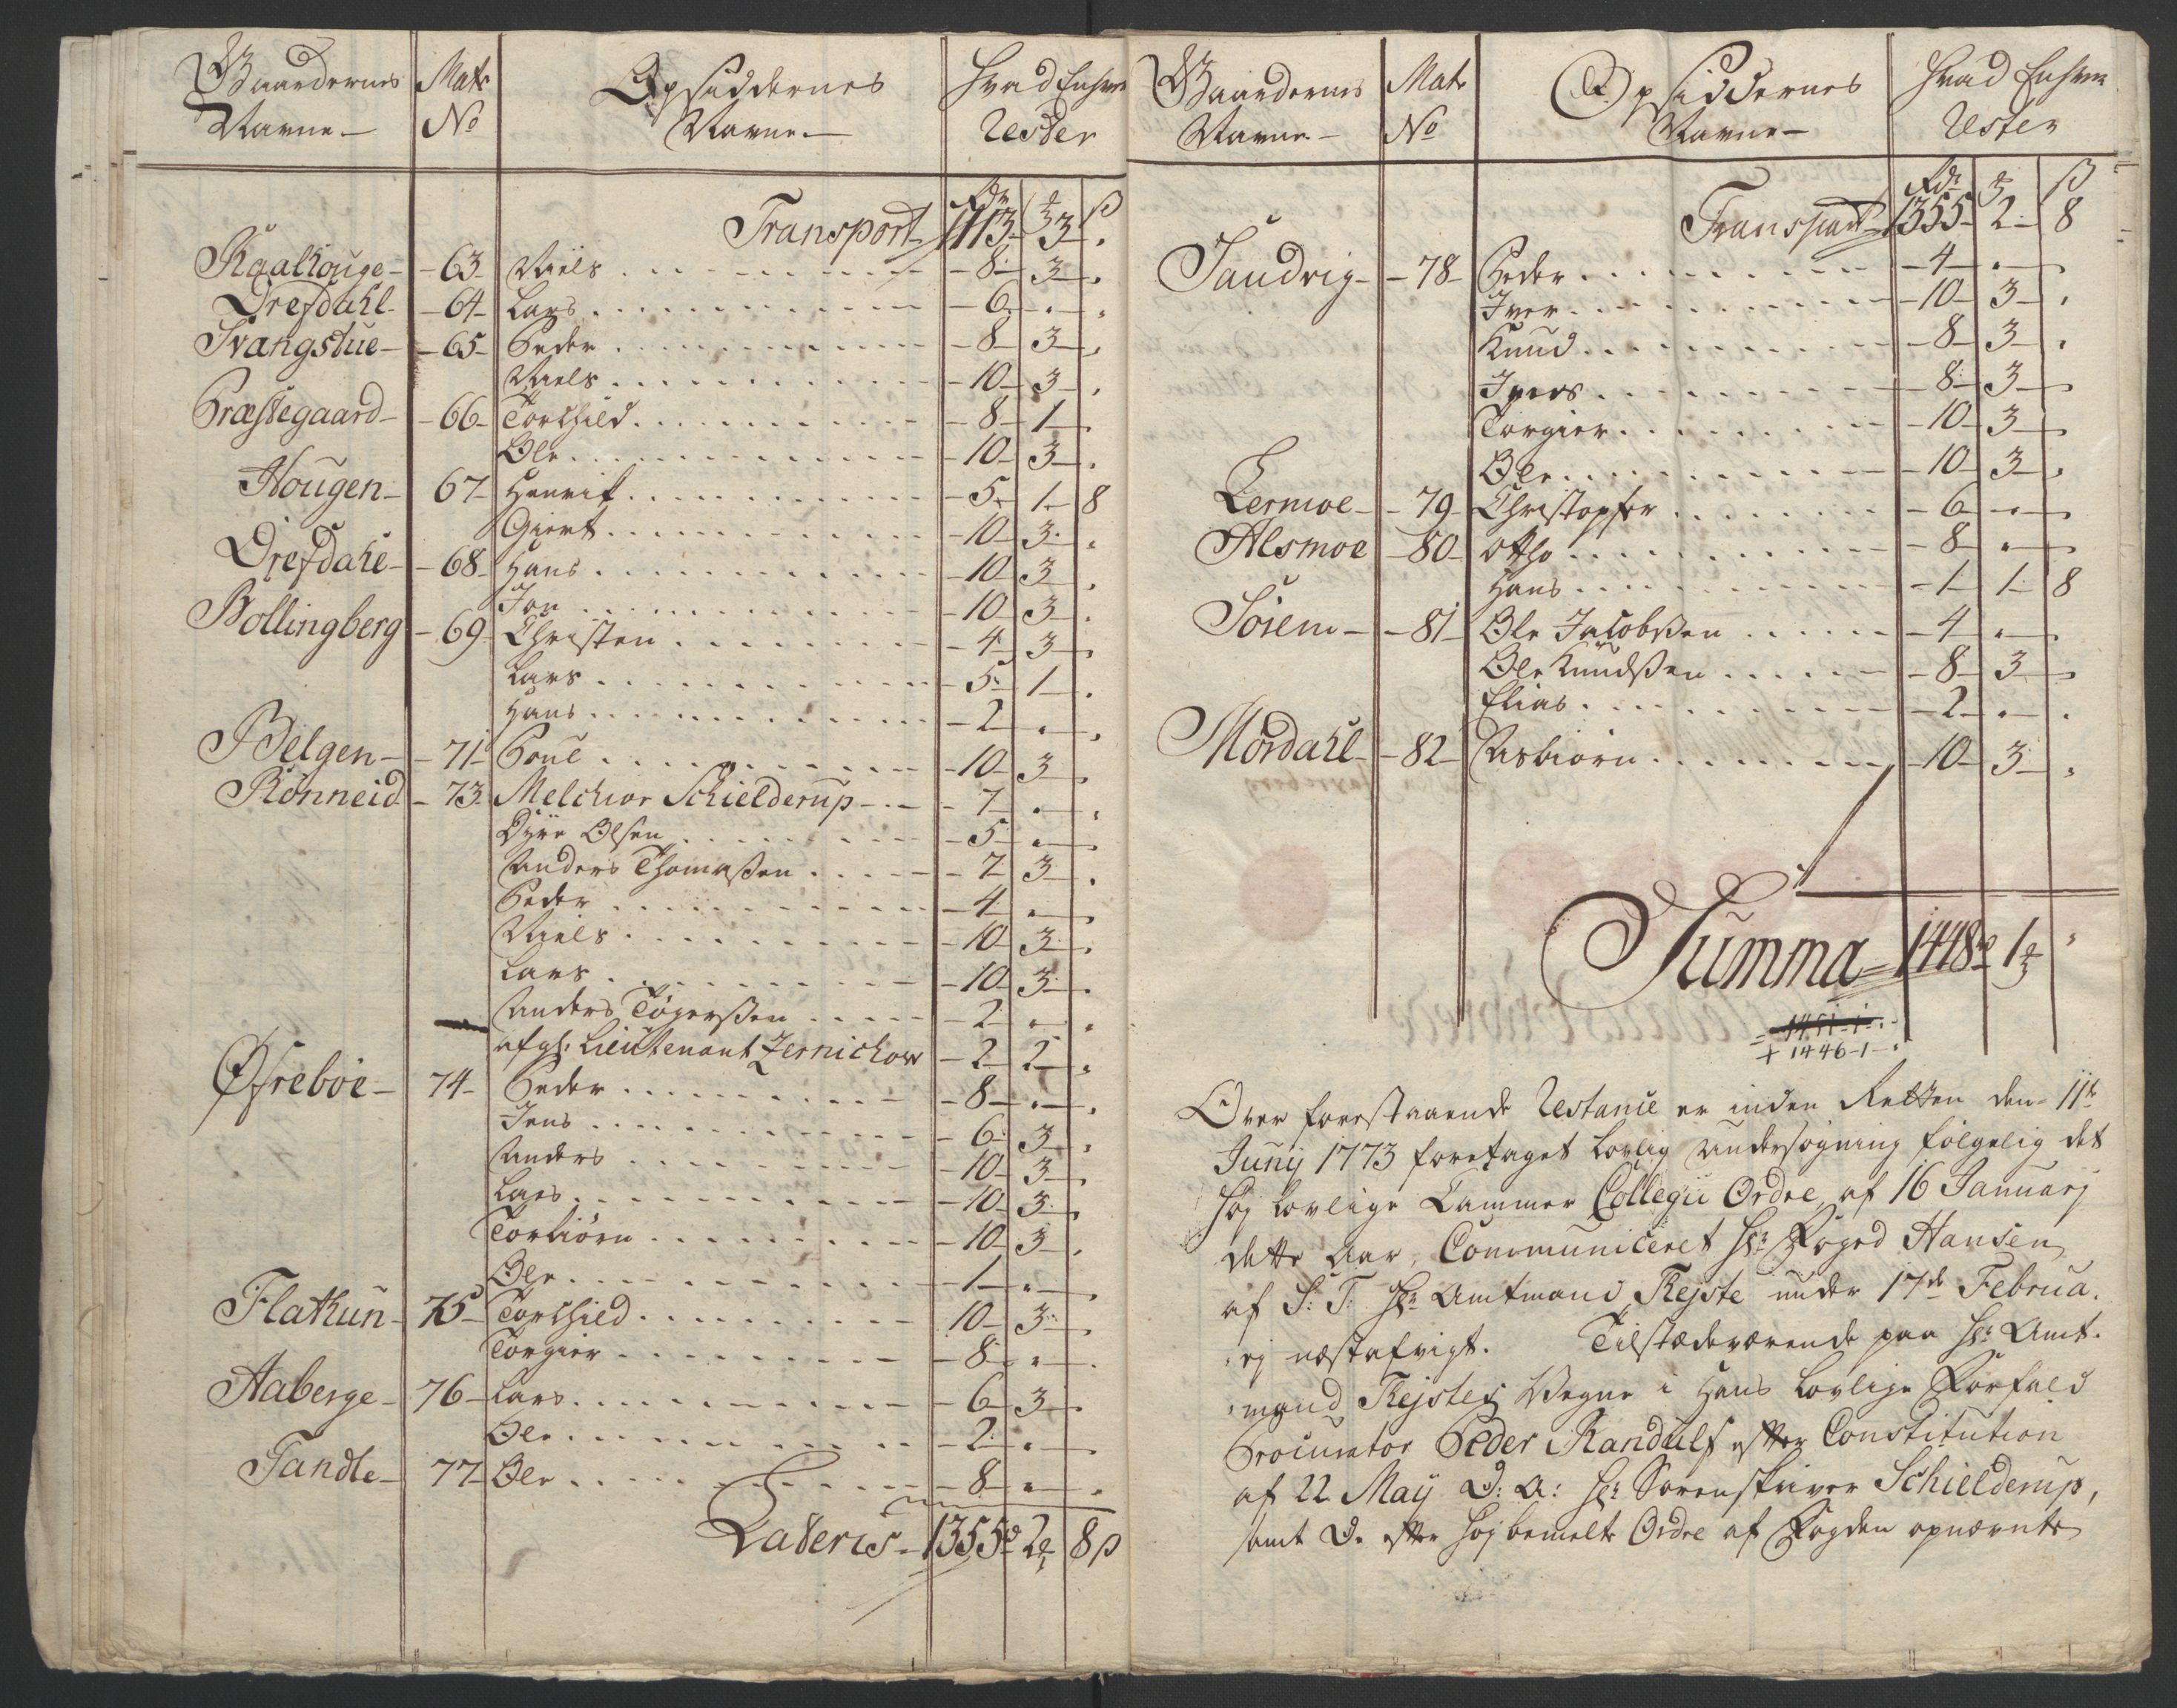 Gaardernes Matr Opsiddernes Hvad Enhver
Navne – No Navne – Rester
Rdr ß
Transport 1113 - 3 .
Kaalhouge - 63 - Niels - 8 - 3 .
Drefdahl - 64 - Lars - 6 . .
Svangstue - 65 - Peder - 8 - 3 .
Niels - 10 - 3 .
Præstegaard - 66 - Torchild - 8 - 1 .
Ole - 10 - 3 .
Hougen - 67 - Henrik - 5 - 1 - 8
Giert - 10 - 3 .
Drefdahl - 68 - Hans - 10 - 3 .
Jon - 10 - 3 .
Bollingberg - 69 - Christen - 4 - 3 .
Lars - 5 - 1 .
Hans - 2 . .
Belgen - 71 - Poul - 10 - 3 .
Rønneid - 73 Melchior Schielderup - 7 . .
Dyre Olsen - 5 . .
Anders Thomaßen - 7 - 3 .
Peder - 4 . .
Niels - 10 - 3 .
Lars - 10 - 3 .
Anders Tøgerßen - 2 . .
afg: Lieutenant Zernichow - 2 - 2 .
Øfreboe - 74 - Peder - 8 . .
Jens - 6 - 3 .
Anders - 10 - 3 .
Lars - 10 - 3 .
Torbiørn - 10 - 3 .
Ole - 1 . .
Flahun - 75 - Torchild - 10 - 3 .
Torgier - 8 . .
Aaberge - 76 - Lars - 6 - 3 .
Ole - 2 . .
Tandle - 77 - Ole - 8 . .
Lateris - 1355 2 8 ß
Gaardernes Matr Opsiddernes Hvad Enhver
Navne – No Navne – Rester
Rdr ß
Transport 1355 - 2 - 8
Sandvig - 78 - Peder - 4 . .
Iver - 10 - 3 .
Knud - 8 - 3 .
Ivers - 8 - 3 .
Torgier - 10 - 3 .
Ole - 10 - 3 .
Lermoe - 79 - Christopher - 6 . .
Alsmoe - 80 - Otto - 8 . .
Hans - 1 - 1 - 8
Søiem - 81 - Ole Jacobßen - 4 . .
Ole Knudßen - 8 - 3 .
Elias - 2 . .
Mordahl - 82 - Asbiørn - 10 - 3 .
Summa - 1448 1
1451 - 1 - .
+ 1446 - 1 - .
Over forestaaende Restance er inden Retten den 11te
Junij 1773 foretaget Lovlig undersøgning følgelig det
Høj Lovlige Cammer Collegii Ordre af 16 Januarj
dette Aar, Communiceret Hr Foged Hansen
af S: T: Hr Amtmand Rejste under 17de Februa.
rj næstafvigt. Tilstædeværende paa Hr Amt.
mand Rejstes Vegne i Hans Lovlige Forfald
Procurator Peder Randulf efter Constitution
af 22 Maij D: A: Hr Sorenskriver Schielderup,
samt de efter Højbemelte Ordre af Fogden opnævnte